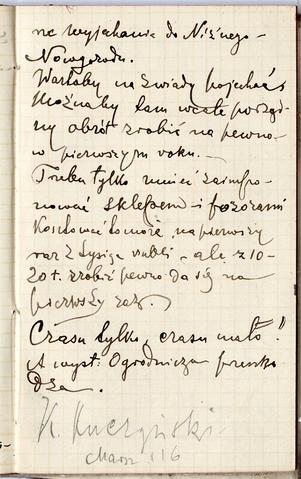 ne wyjechanie do Niżnego-
Nowgorodu.
Warto by na zwiady pojechać
Możnaby tam wcale porząd-
ny obrót zrobić na pewno
w pierwszym roku. —
Trzeba tylko umieć zaimpo-
nować sklepem i pozorami
Kosztować to może na pierwszy
raz 2 tysiące rubli — ale z 10-
20 t. zrobić pewno da się na
pierwszy raz.
Czasu tylko, czasu mało!!
A wyst. Ogrodnicza
K. Kuczyński
Marz 16